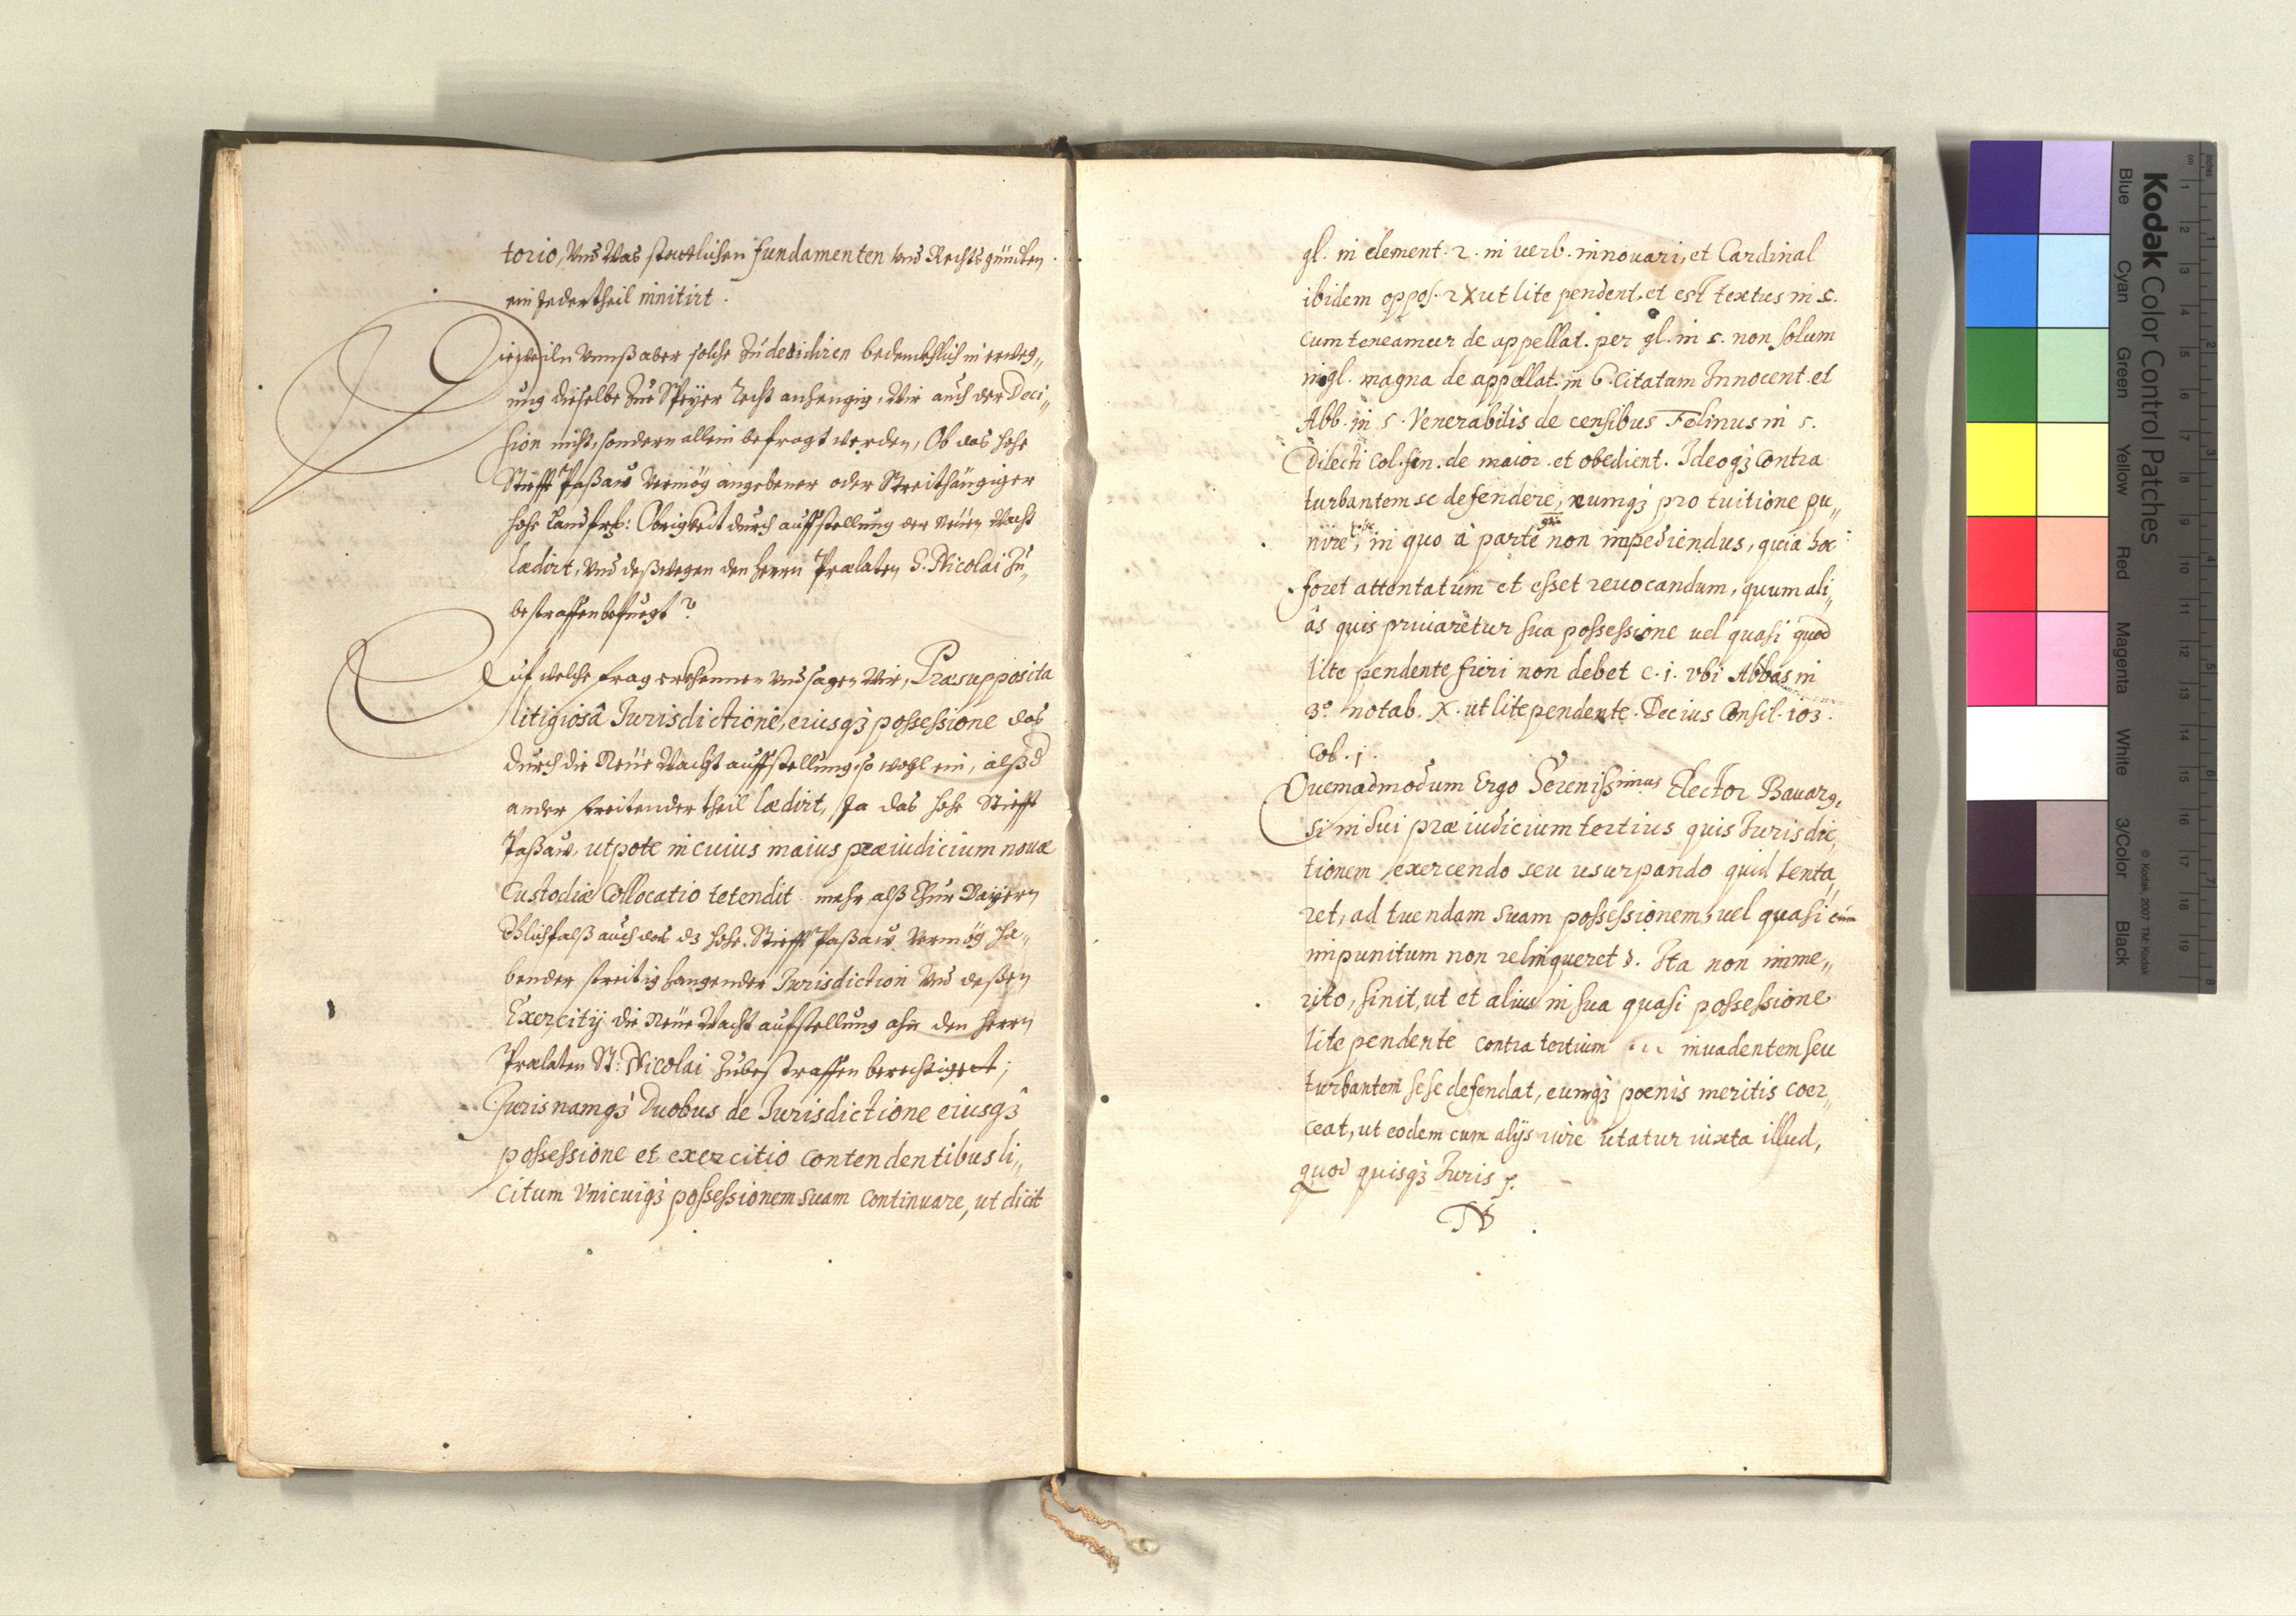 torio, Vnd Was stattlichen fundamenten vnd Rechtsgründen
ein Jeder theil innitirt.
Dieweiln Vnnß aber solche Zu decidiren bedenckhlich in erweg„
ung dieselbe Zue Speyer Recht anhengig, Wir auch der Deci„
sion nicht, sondern allein befragt werden, Ob das hohe
Stifft Paßaw Vermög angebener oder Streithängiger
hohe Landfrh: Obrigkeit durch auffstellung der Neuen Wacht
lædirt, Vnd deßwegen den herrn Prælaten S. Nicolai Zu„
bestraffen befuegt?
Auf welche frag erkhennen Vnd sagen Wir, Præsupposita
litigiosâ Jurisdictione, eiusq3 possessione das
durch die Neue Wacht auffstellung, so wogl ein, alß d
ander streitender theil lædirt, Ja das hohe Stifft
Paßaw, utpote in cuius maius præiudicium nouæ
Custodiæ Collocatio tetendit mehr alß Chur Bayern
Gleichfalß auch das d3 hohe Stifft Paßaw Vermög ha„
bender streitig hangender Jurisdiction Vnd deßen
Exercity die Neue Wacht aufstellung ahn den herrn
Prælaten St: Nicolai Zubestraffen berechtiget;
Juris namq3 Duobus de Jurisdictione eiusq3
possessione et exercitio contendentibus li„
citum Vnicuiq3 possessionem suam continuare, ut dicit
gl. in element. 2. in uerb. innouari, et Cardinal
ibidem oppos. 2 X ut lite pendent. et est textus in c.
cum teneamur de appellat. per gl. in c. non solum
in gl. magna de appellat. in 6. citatam Innocent. et
Abb. in c. Venerabilis de censibus Felinus in c.
Dilecti col. fin. de maior. et obedient. Ideoq3 contra
turbantem se defendere, eumq3 pro tuitione pu„
nire, in quo à parte non impediendus, quia hoc
foret attentatum et esset reuocandum, quum ali„
âs quis priuaretur sua possessione uel quasi quod
lite pendente fieri non debet c. i. vbi Abbas in
3º notab. X. ut lite pendente. Decius Consil. 103.
Col. j.
Quemadmodum Ergo Serenissimus Elector Bauar9,
si in sui præiudicium tertius quis Jurisdic„
tionem exercendo seu usurpando quid tenta„
ret, ad tuendam suam possessionem uel quasi eum
impunitum non relinqueret. Ita non imme„
rito, sinit, ut et alius in sua quasi possessione
lite pendente contra tertium inuadentem seu
turbantem sese defendat, eumq3 poenis meritis coer„
ceat, ut eodem cum alijs iure utatur iuxta illud,
quod quisq3 Juris p.